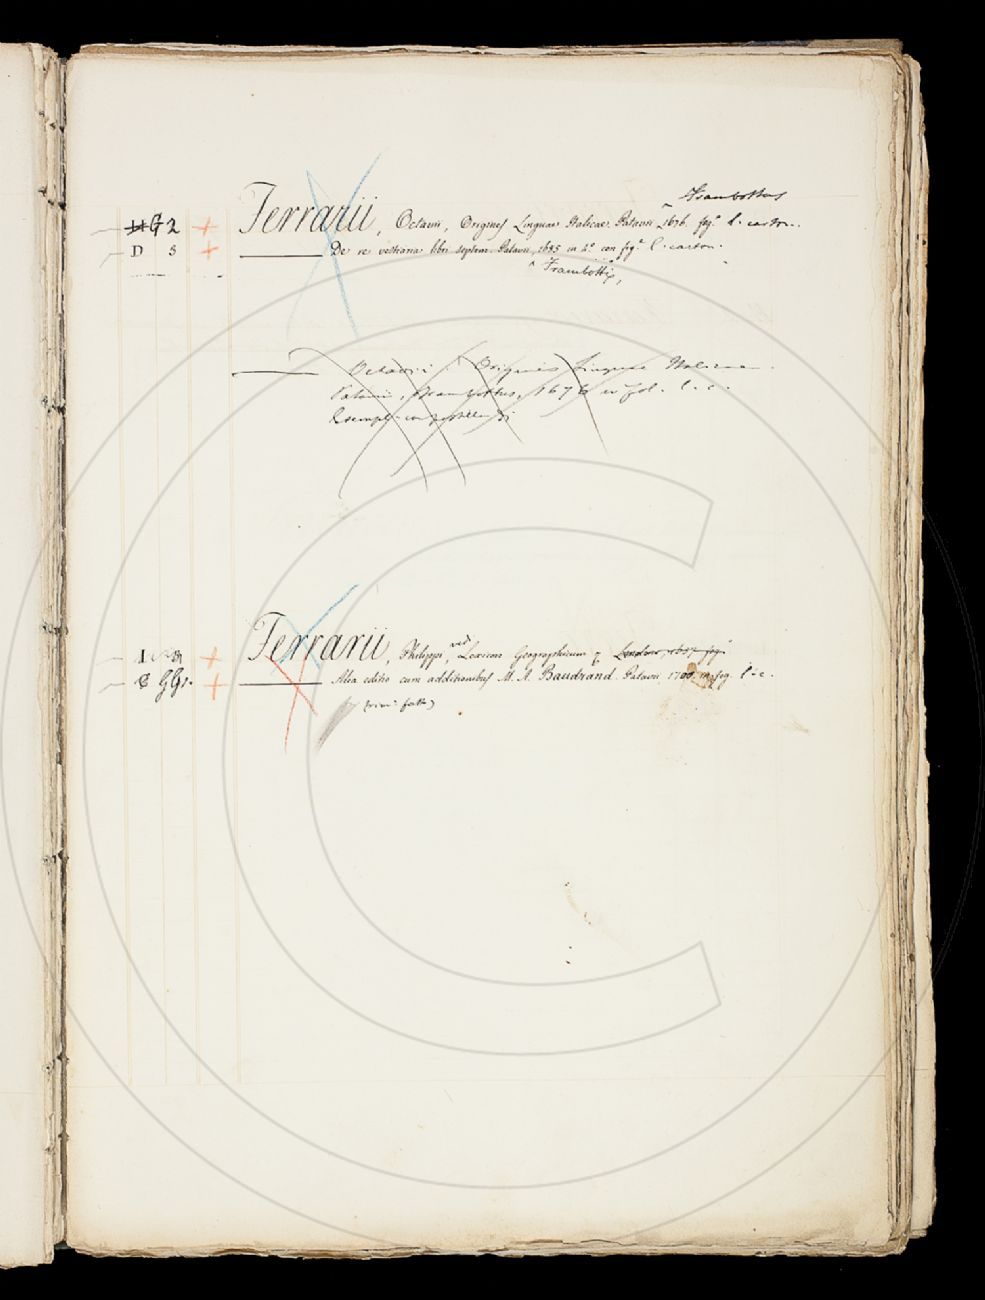 Frambottus
G 2 + Ferrarii, Octavii, Origines Linguae Italicae. Patavii, 1676. fog.º l. carton.
D S + De re vestiaria libri septem. Patavii, 1685 in 4.º con fig.e l. carton.
Frambotti,
Octavii Origines Linguae Italicae.
Patavii, Frambottus, 1676 in fol. l. c.
ved
Ferrarii, Philippi, Lexicon Geographicum
GG + Alia editio cum additionibus M. A. Baudrand. Patavii 1700. l. c.